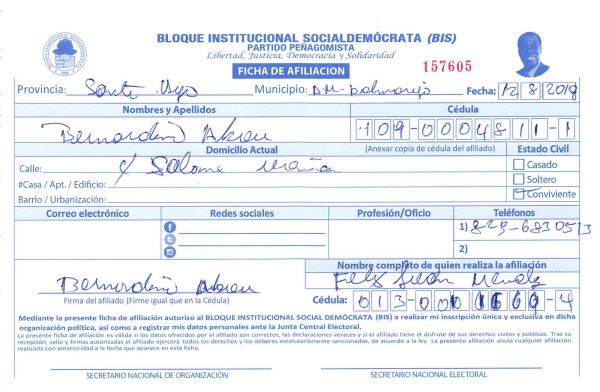 BLOQUE INSTITUCIONAL SOCIALDEMÓCRATA (BIS)
PARTIDO PEÑAGOMISTA
Libertad, Justicia, Democracia y Solidaridad
FICHA DE AFILIACION
157605
Provincia: Santo Dgo Municipio: D.M. palmarejo Fecha: 12 8 2019
Nombres y Apellidos Cédula
Bernardino Abreu 109-0004811-1
Domicilio Actual (Anexar copia de cédula del afiliado) Estado Civil
Calle: Salome Casado
#Casa / Apt. / Edificio: Soltero
Barrio / Urbanización: Conviviente
Correo electrónico Redes sociales Profesión/Oficio Teléfonos
1) 829-6830513
2)
Nombre completo de quien realiza la afiliación
Bernardino Abreu Mendez
Firma del afiliado (Firme igual que en la Cédula) Cédula: 013-0001669-4
Mediante la presente ficha de afiliación autorizo al BLOQUE INSTITUCIONAL SOCIAL DEMÓCRATA (BIS) a realizar mi inscripción única y exclusiva en dicha
organización política, así como a registrar mis datos personales ante la Junta Central Electoral.
La presente ficha de afiliación es válida si los datos ofrecidos por el afiliado son correctos, las declaraciones veraces y si el afiliado tiene el disfrute de sus derechos civiles y políticos. Tras su
recepción, sello y firmas autorizadas el afiliado ejercerá todos los derechos y los deberes estatutariamente sancionados, de acuerdo a la ley. La presente afiliación anula cualquier afiliación
realizada con anterioridad a la fecha que aparece en esta ficha.
SECRETARIO NACIONAL DE ORGANIZACIÓN SECRETARIO NACIONAL ELECTORAL